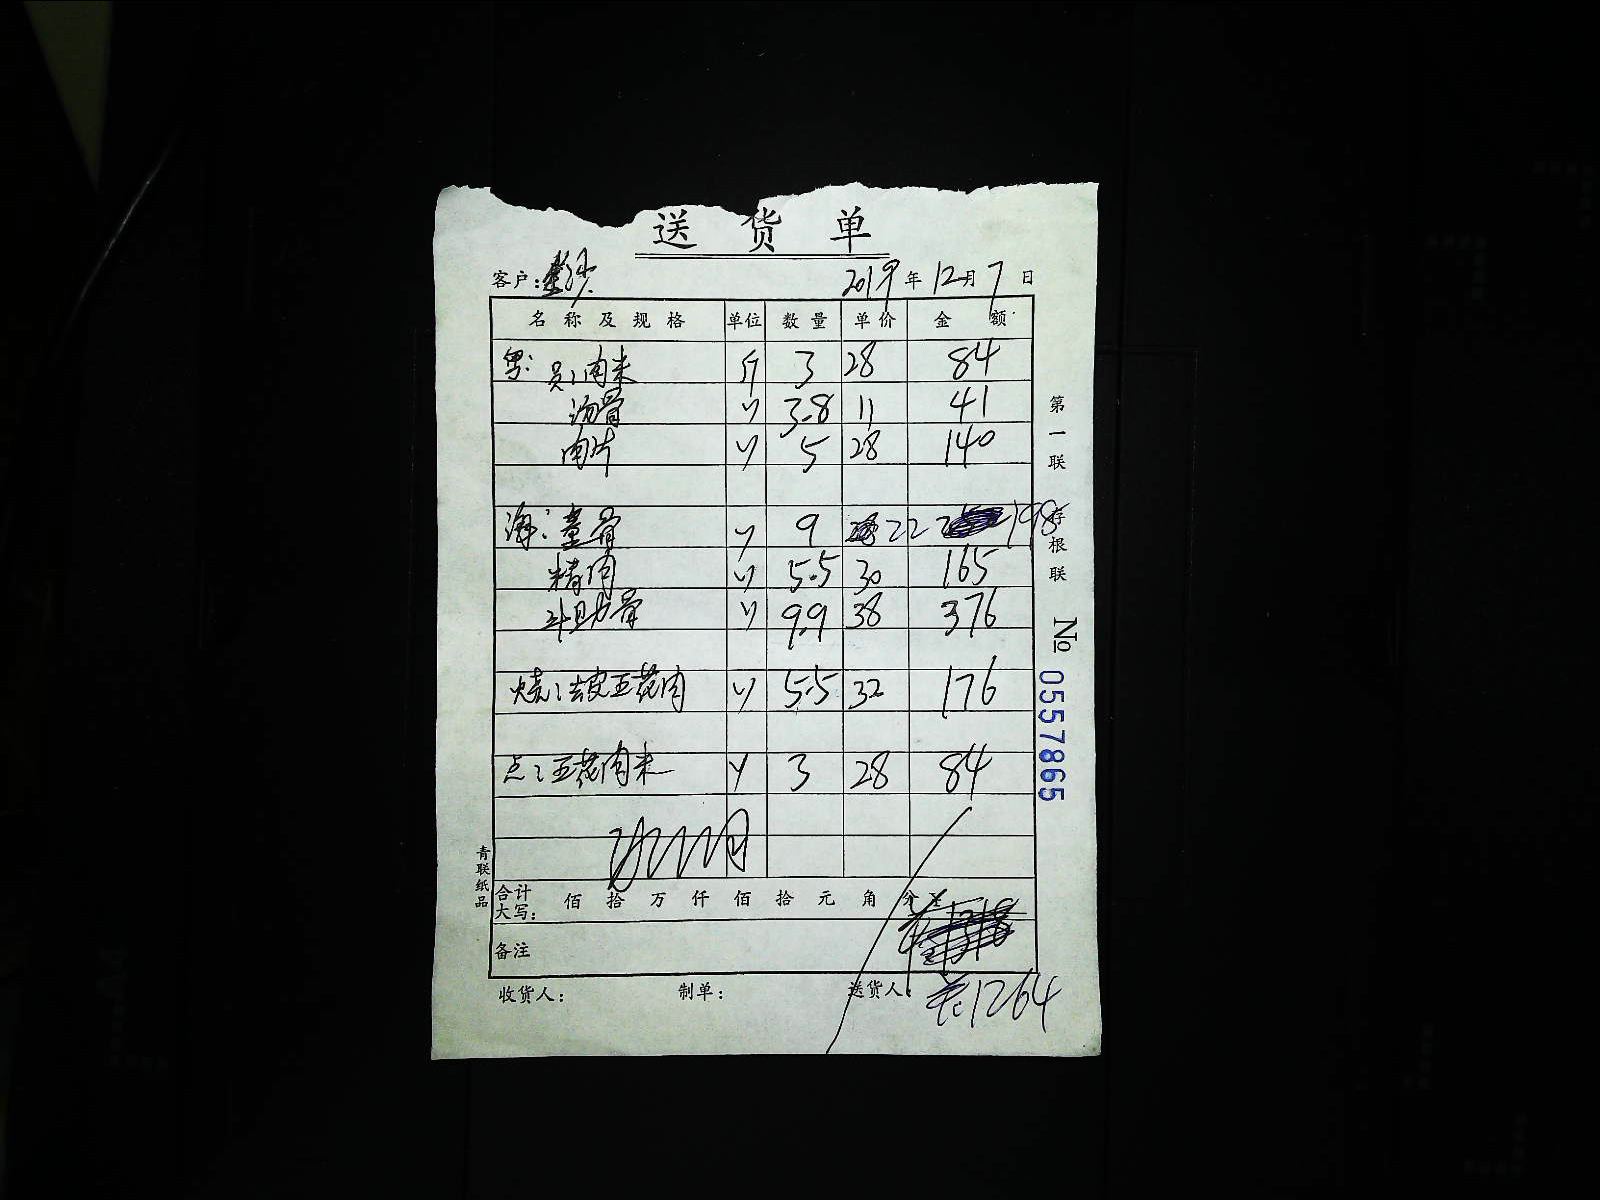 送货单
客户: 金沙 2019年12月7日
名称及规格 单位 数量 单价 金额
粤: 员: 肉米 斤 3 28 84
汤骨 〃 3.8 11 41
肉片 〃 5 28 140
海: 童骨 〃 9 22 198
精肉 〃 5.5 30 165
斗助骨 〃 9.9 38 376
烧: 去皮五花肉 〃 5.5 32 176
点: 五花肉米 〃 3 28 84
合计大写: 佰 拾 万 仟 佰 拾 元 角 分
备注
收货人: 制单: 送货人:
1264
第一联 存根联
No 0557865
青联纸品